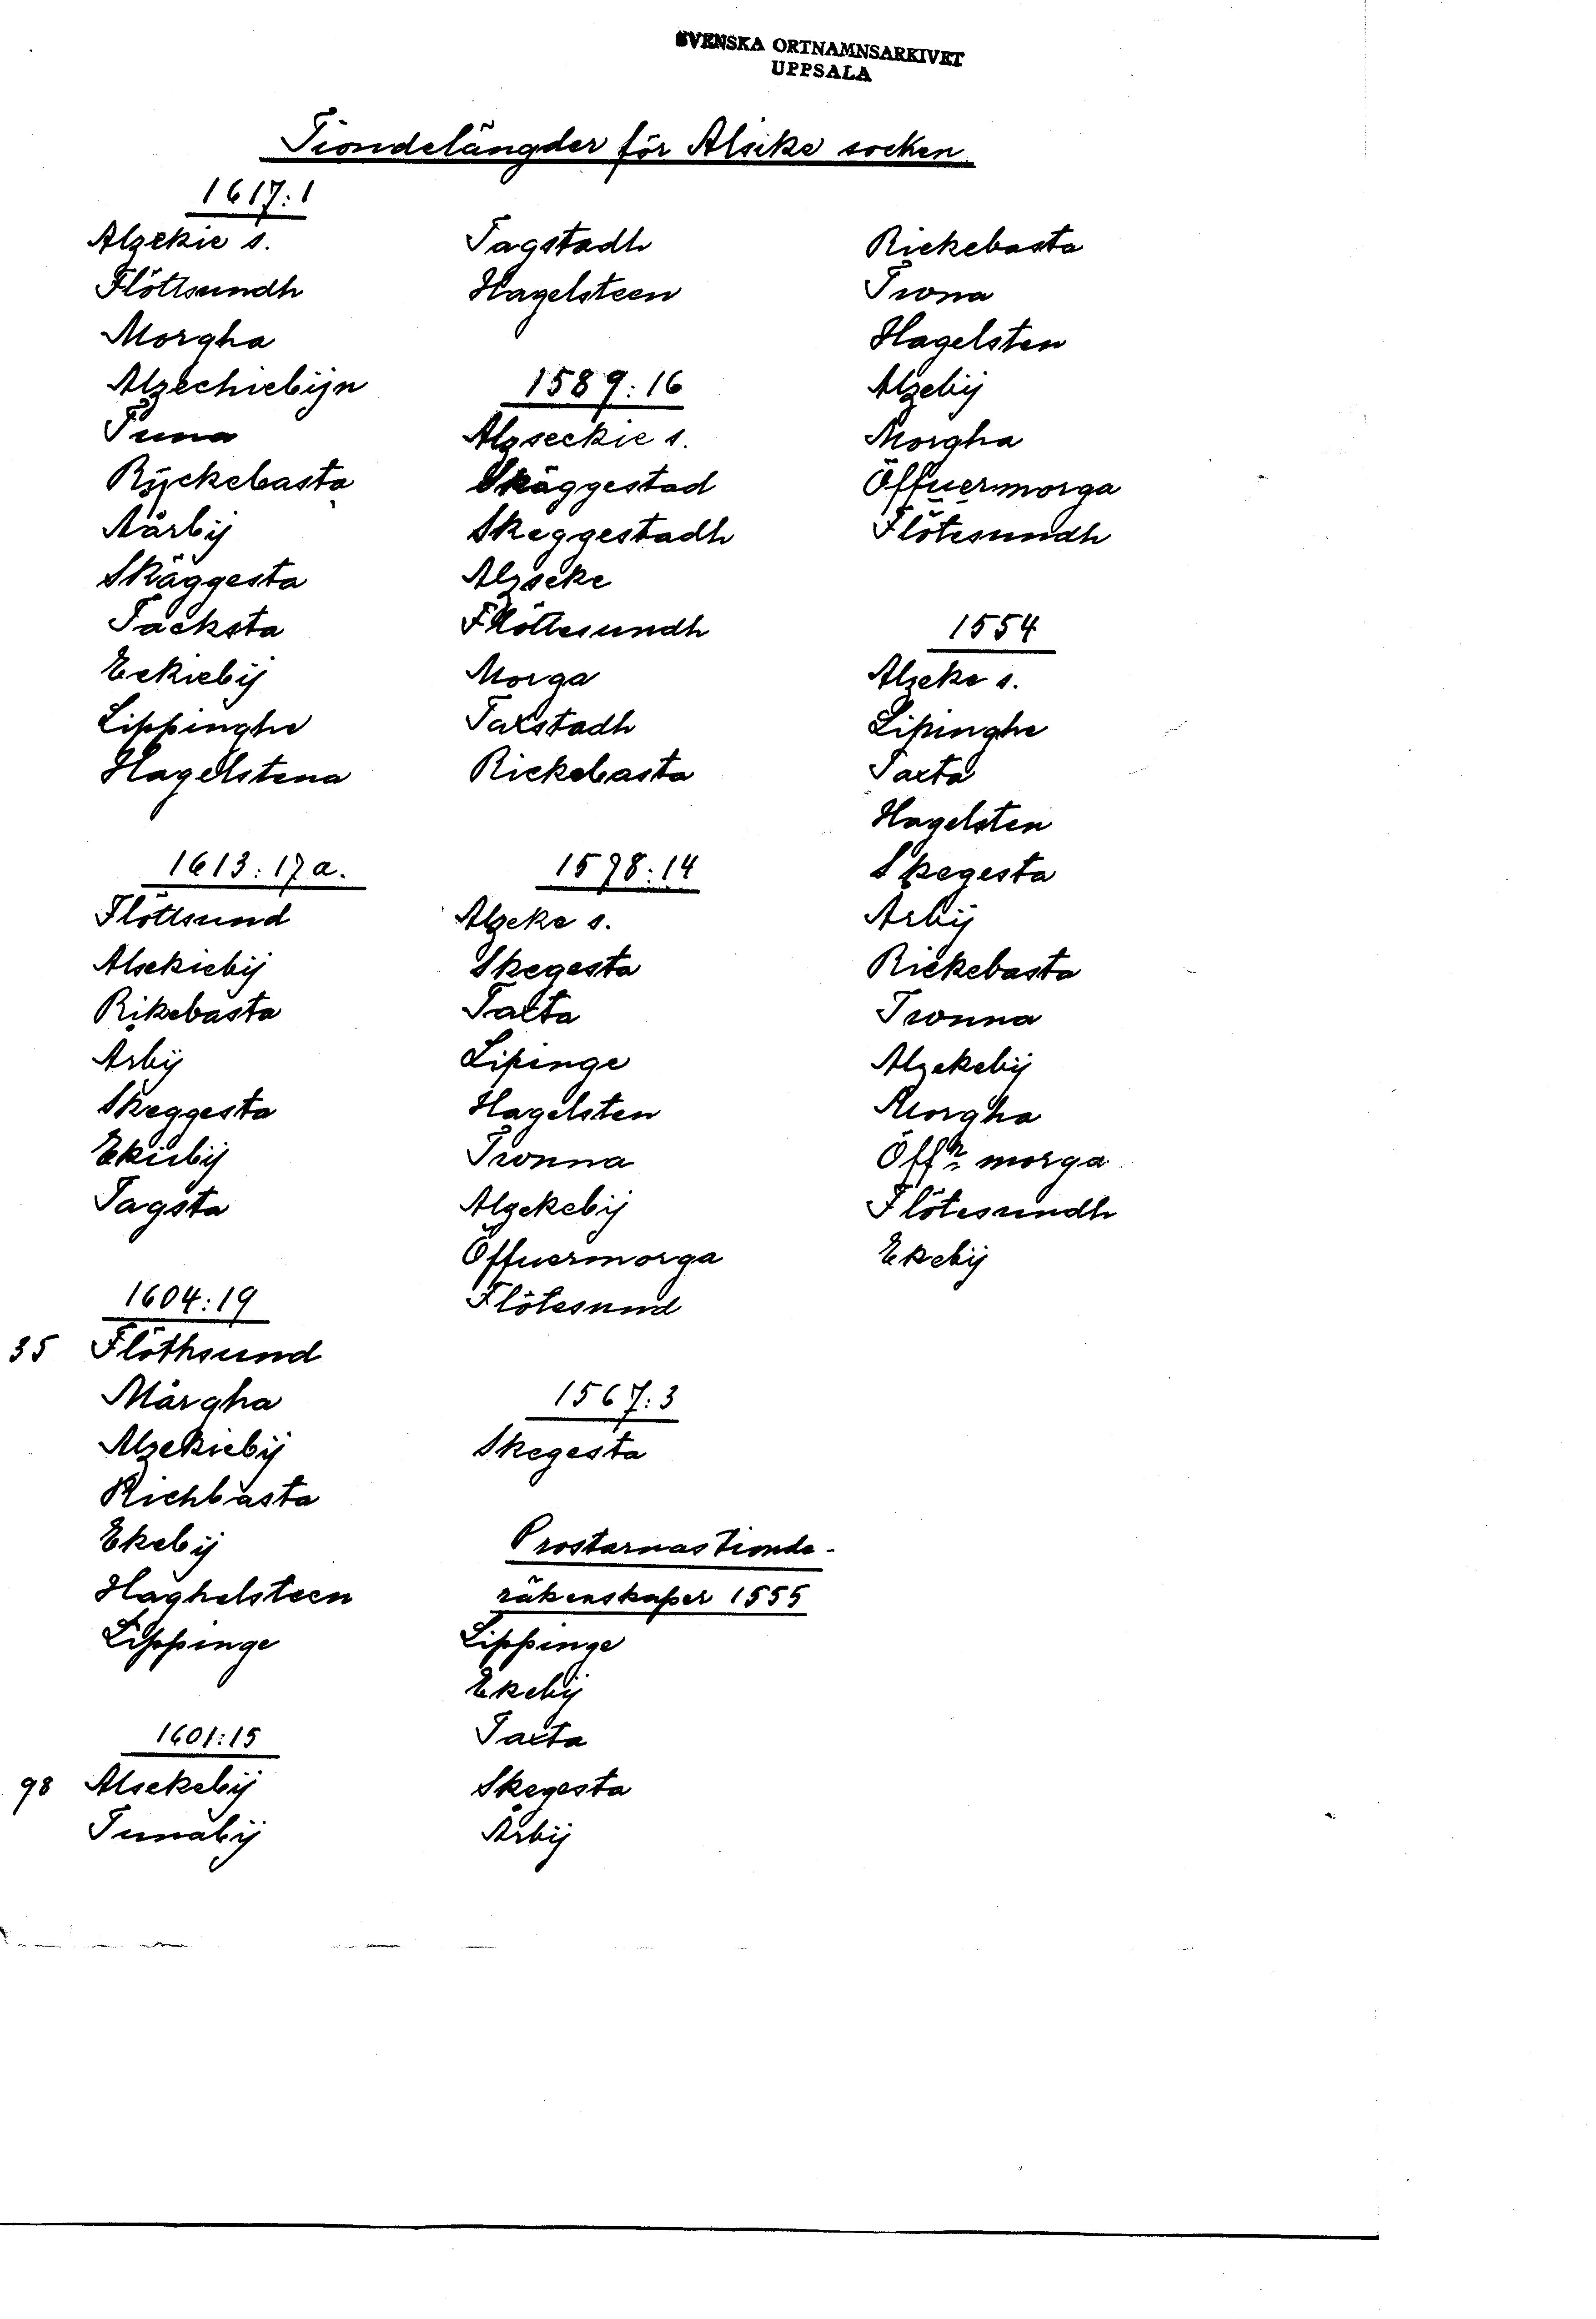 SVENSKA ORTNAMNSARKIVET
UPPSALA
Tiondelängder för Alsike socken
1617:1
Alzekie s.
Flöttsundh
Morgha
Alzechiebijn
Tuna
Rÿckebasta
Aårbij
Skäggesta
Tacksta
Eekiebij
Lippinghe
Hagelstena
1613:17a.
Flöttsund
Alsekiebij
Rikebasta
Arbij
Skeggesta
Ekiebij
Tagsta
1604:19
35 Flöthsund
Mårgha
Alzekiebij
Richbasta
Ekebij
Haghelsteen
Lippinge
1601:15
98 Alsekebij
Tunabij
Tagstadh
Hagelsteen
1589:16
Alzseckie s.
Skäggestad
Skeggestadh
Alzseke
Flöttesundh
Morga
Taxstadh
Rickebasta
1578:14
Alzeke s.
Skegesta
Taxta
Lipinge
Hagelsten
Twnna
Alzekebij
Öffuermorga
Flötesund
1567:3
Skegesta
Prostarnas tionde-
räkenskaper 1555
Lippinge
Ekebij
Taxta
Skegesta
Årbij
Rickebasta
Twna
Hagelsten
Alzebij
Morgha
Öffuermorga
Flötesundh
1554
Alzeke s.
Lipinghe
Taxta
Hagelsten
Skegesta
Arbij
Rickebasta
Twnna
Alzekebij
Morgha
Öff morga
Flötesundh
Ekebij